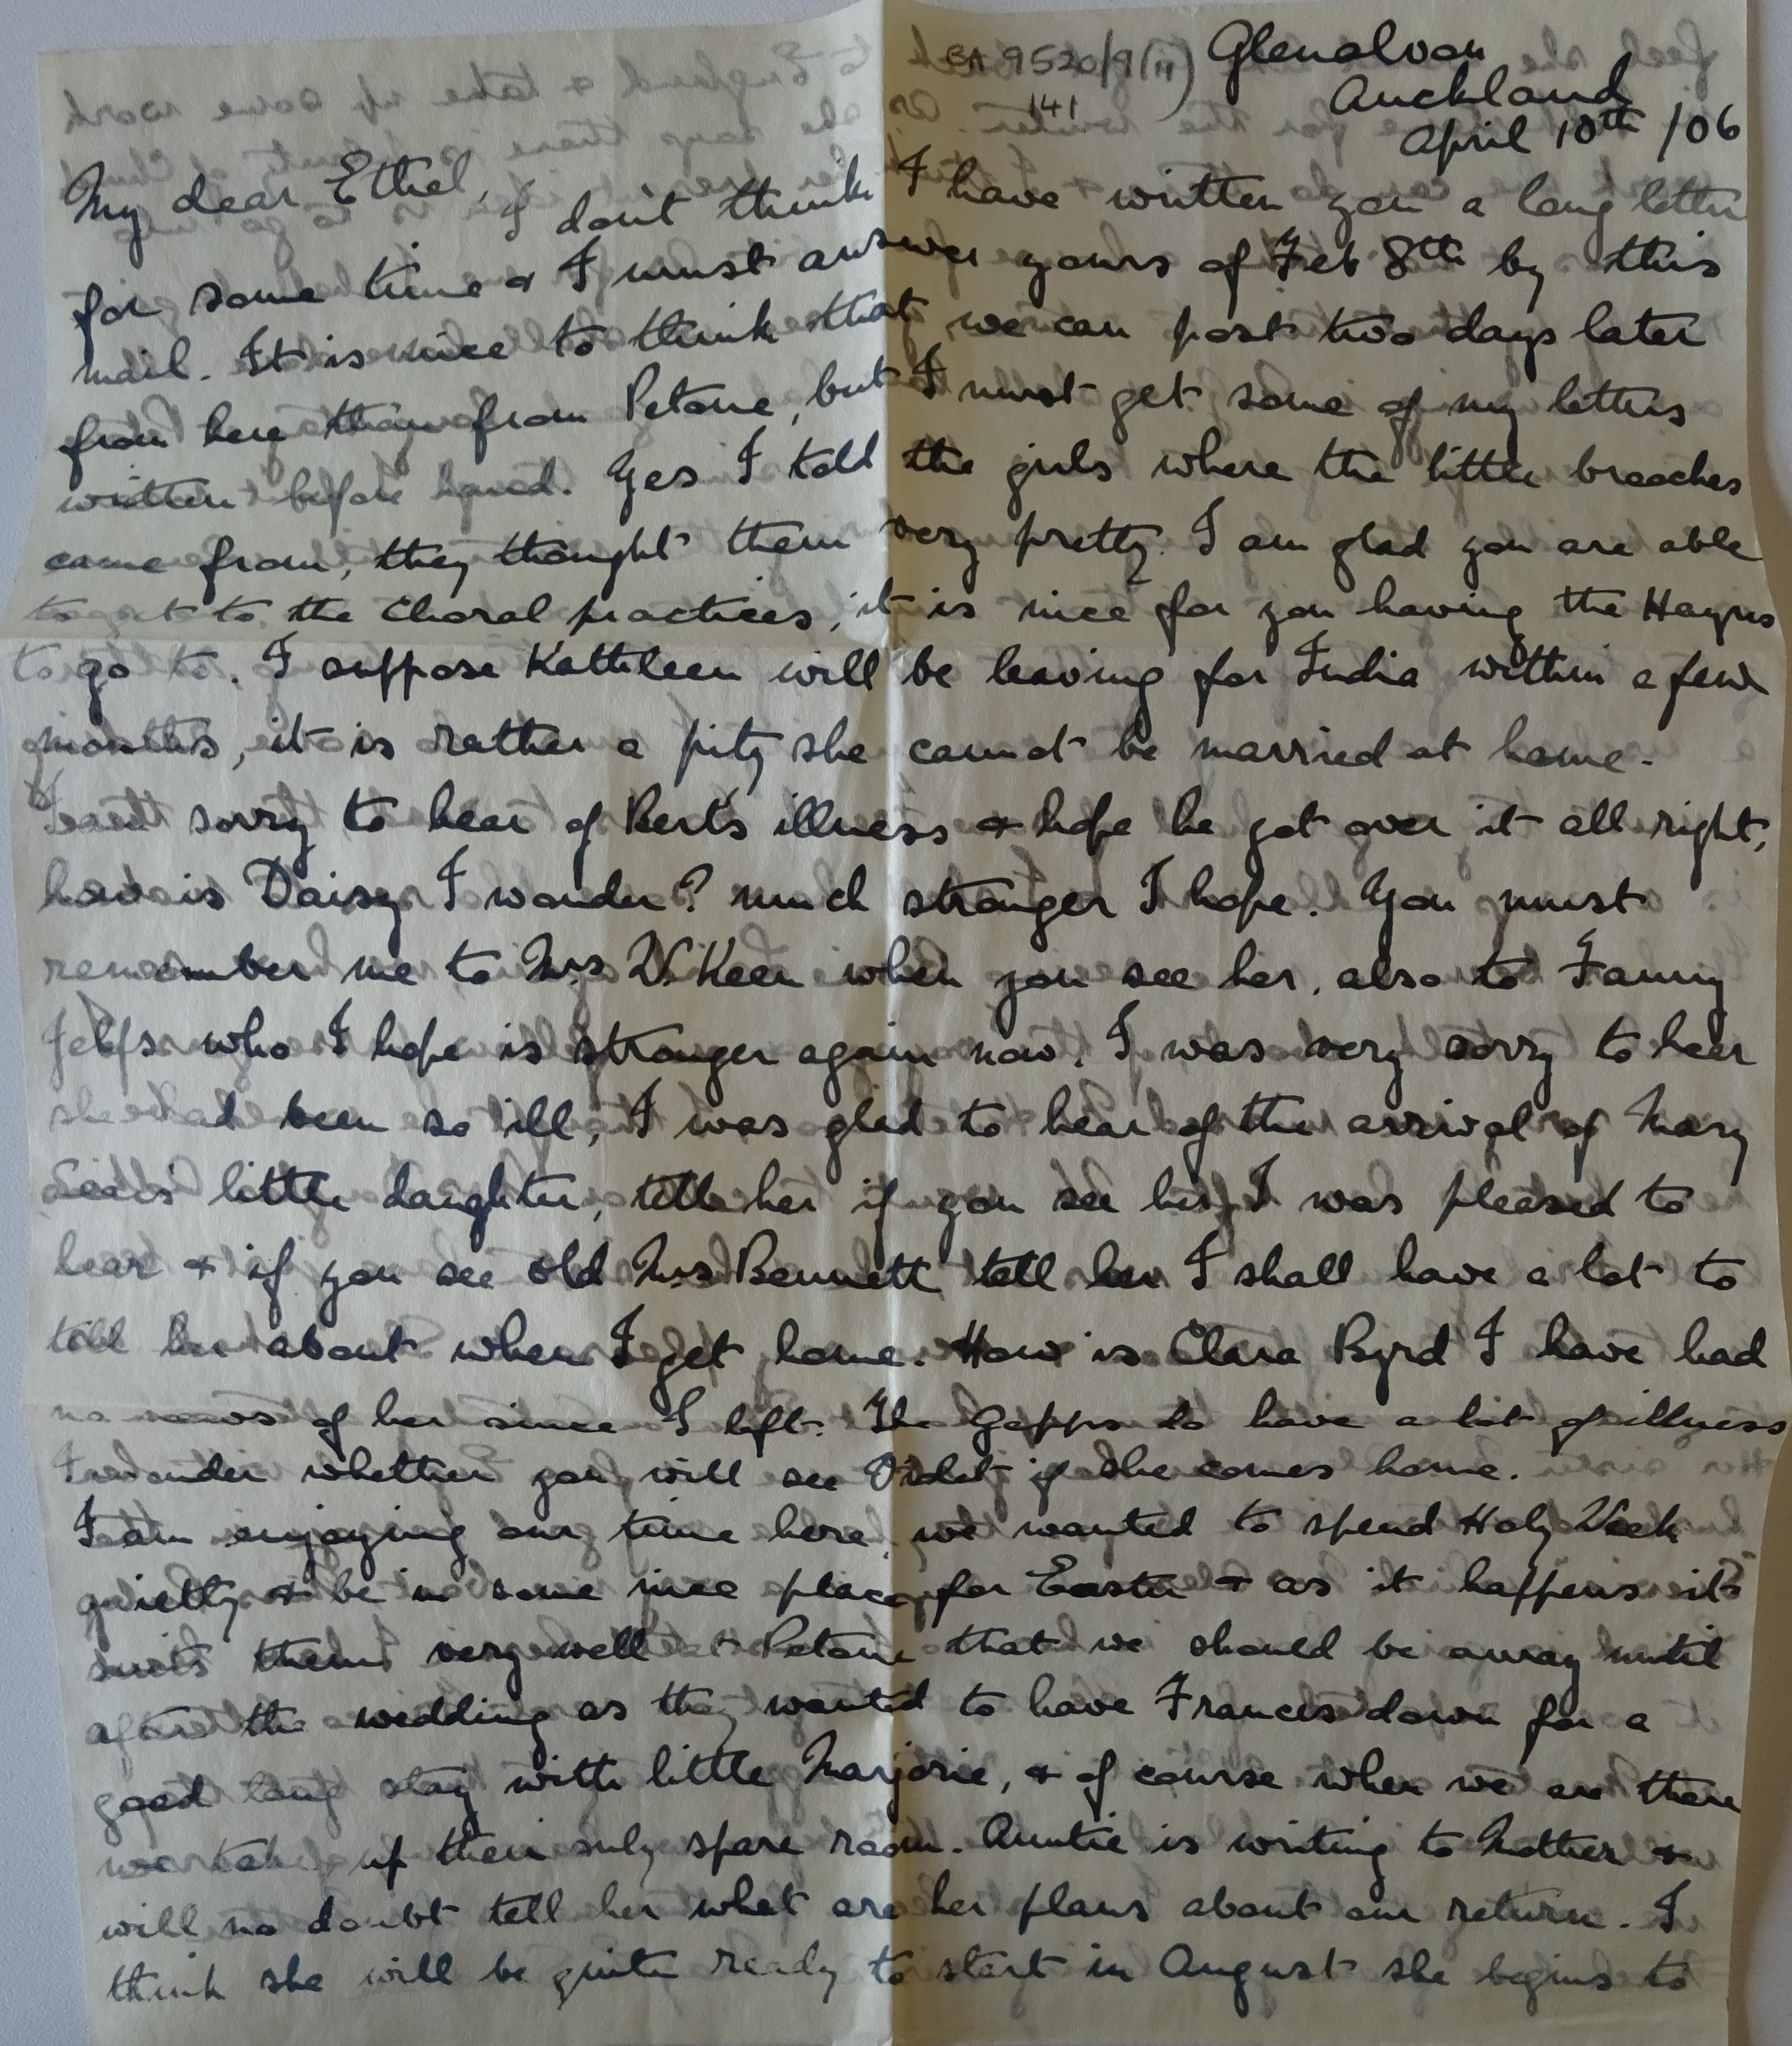 BA 9520/9(ii)
141
Glenalvon
Auckland
April 10th /06
My dear Ethel,
I don't think I have written you a long letter
for some time & I must answer yours of Feb 8th by this
mail. It is nice to think that we can post two days later
from here than from Petone, but I must get some of my letters
written before hand. Yes I told the girls where the little brooches
came from, they thought them very pretty. I am glad you are able
to get to the Choral practices, it is nice for you having the
to go to. I suppose Kathleen will be leaving for India within a few
months, it is rather a pity she cannot be married at home.
sorry to hear of Bert's illness & hope he got over it all right,
how is Daisy I wonder? much stronger I hope. You must
remember me to Mrs W. Keen when you see her, also to Fanny
who I hope is stronger again now. I was very sorry to hear
she had been so ill, I was glad to hear of the arrival of Mary
little daughter, tell her if you see her I was pleased to
hear & if you see old Mrs Bennett tell her I shall have a lot to
tell her about when I get home. How is Clara Byrd I have had
no news of her since I left. The Gepps do have a lot of illness
I wonder whether you will see Violet if she comes home.
I am enjoying our time here, we wanted to spend Holy Week
quietly & be in some nice place for Easter & as it happens it
suits them very well at Petone that we should be away until
after the wedding as they wanted to have Frances down for a
good long stay with little Marjorie, & of course when we are there
we take up their only spare room. Auntie is writing to Mother &
will no doubt tell her what are her plans about our return. I
think she will be quite ready to start in August she begins to